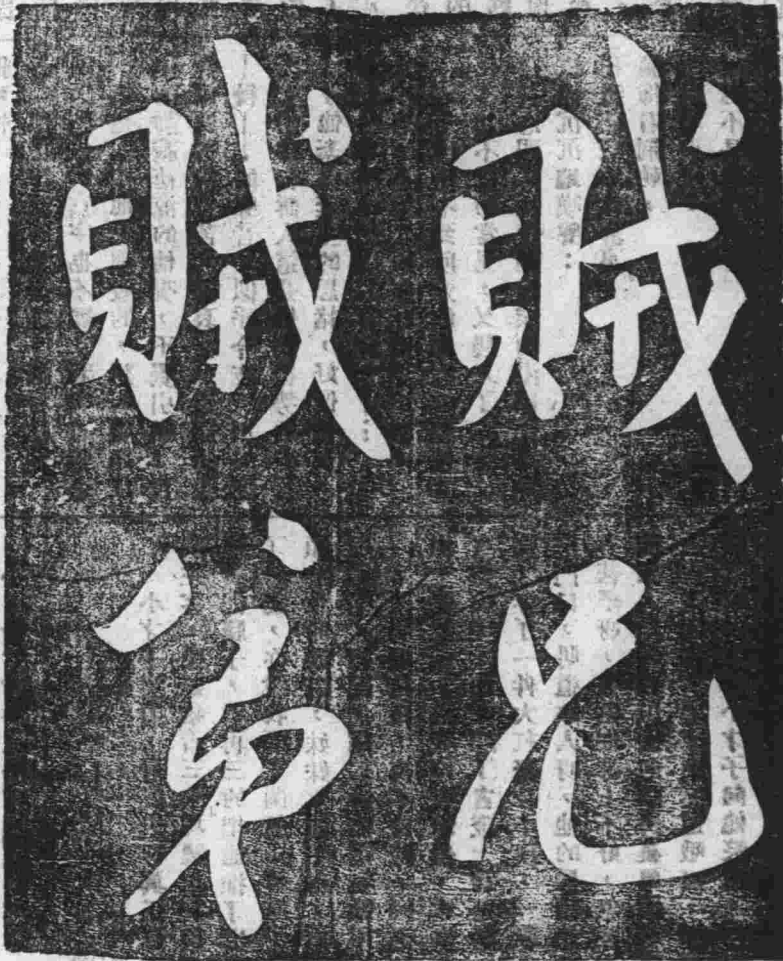 賊兄
賊弟